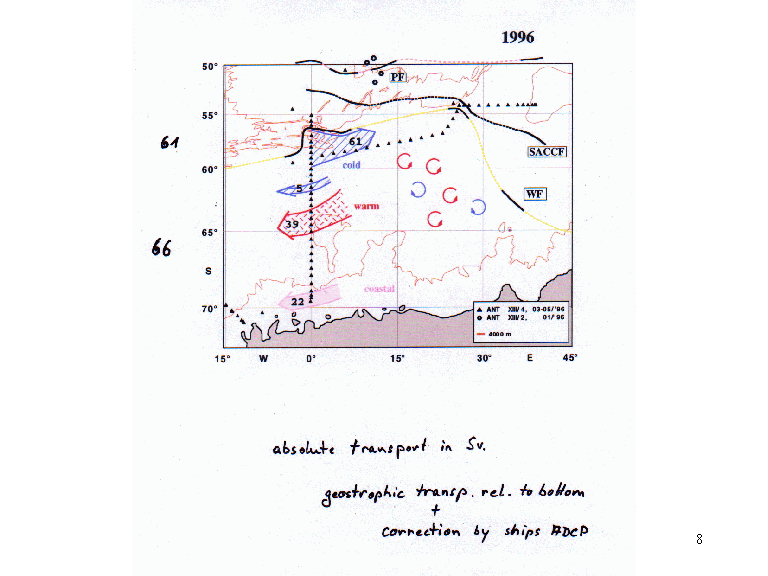 1996
50°
PF
55°
61
61
SACCF
cold
60°
5
WF
warm
39
65°
66
S
coastal
22
70°
▲ ANT XIII/4, 03-05/'96
ANT XIII/2, 01/'96
4000 m
15° W 0° 15° 30° E 45°
absolute transport in Sv.
geostrophic transp. rel. to bottom
+
correction by ships ADCP
8